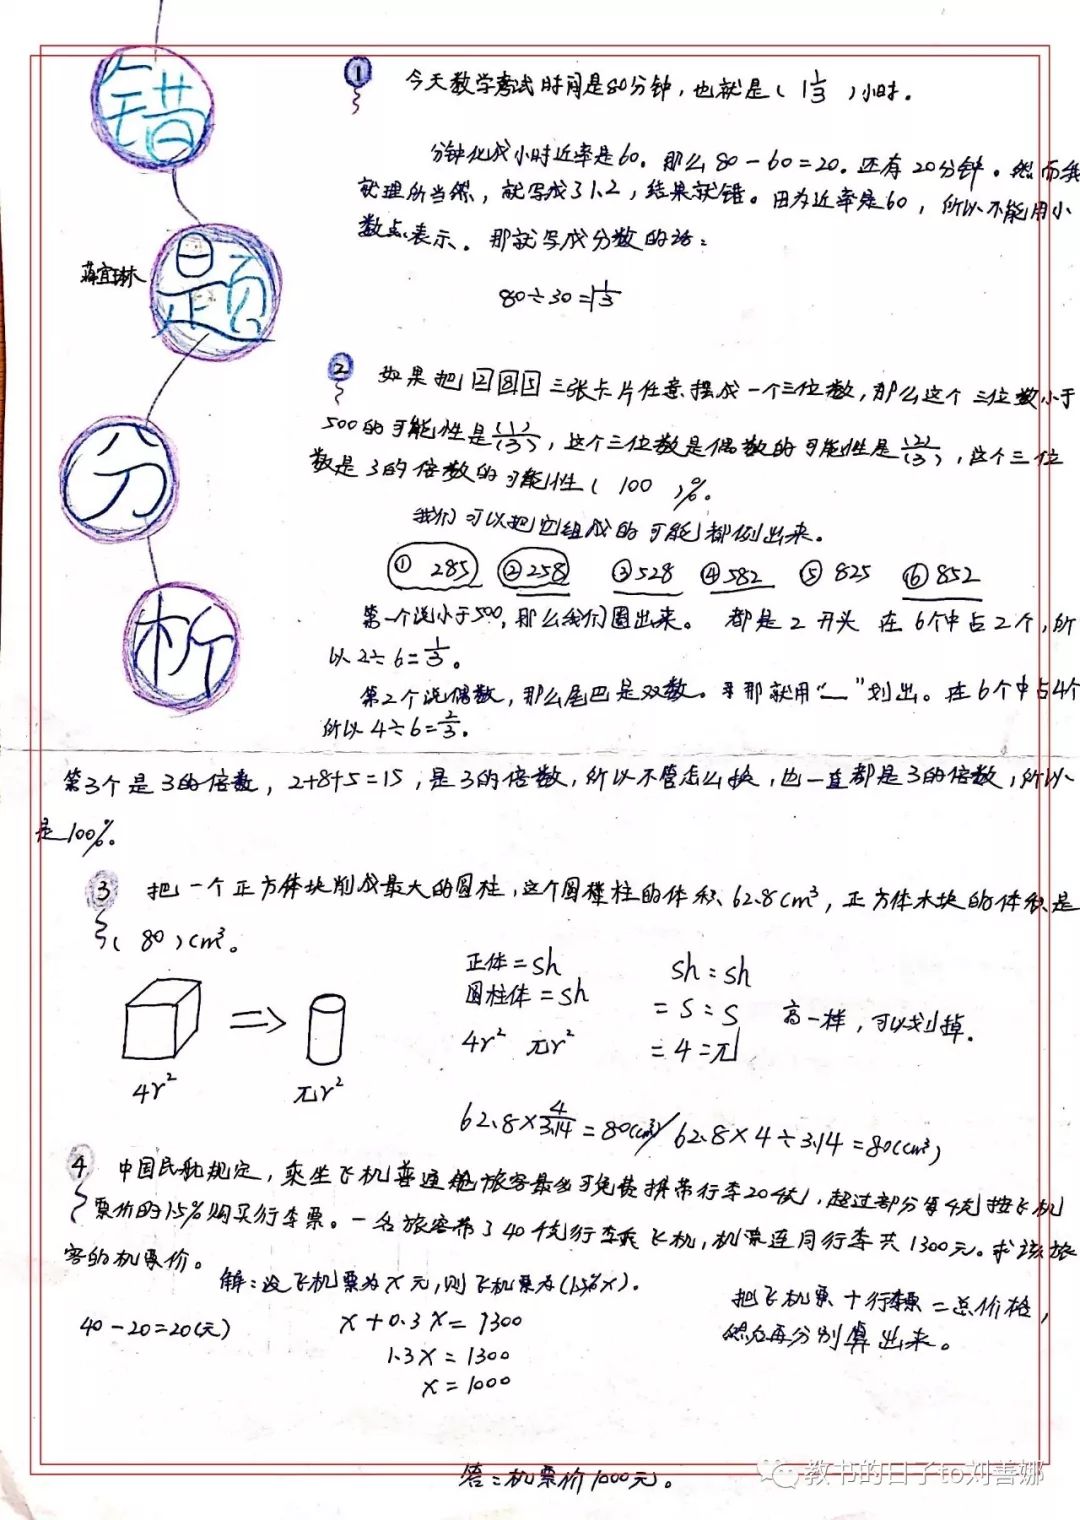 错
题
分
析
蒋宜琳
① 今天数学考试时间是80分钟，也就是（1 1/3）小时。
分钟化成小时近率是60。那么80－60=20。还有20分钟。然而我
就理所当然，就写成了1.2，结果就错。因为近率是60，所以不能用小
数点表示。那就写成分数的话：
80÷30=1 1/3
② 如果把 2 8 5 三张卡片任意摆成一个三位数，那么这个三位数小于
500的可能性是(1)/(3)，这个三位数是偶数的可能性是(2)/(3)，这个三位
数是3的倍数的可能性（100）%。
我们可以把它组成的可能都例出来。
① 285 ② 258 ③ 528 ④ 582 ⑤ 825 ⑥ 852
第一个说小于500，那么我们圈出来。都是2开头 在6个中占2个，所
以2÷6=1/3。
第2个说偶数，那么尾巴是双数。那就用“—”划出。在6个中占4个
所以4÷6=2/3。
第3个是3的倍数，2+8+5=15，是3的倍数，所以不管怎么换，也一直都是3的倍数，所以
是100%。
③ 把一个正方体块削成最大的圆柱，这个圆柱的体积62.8cm³，正方体木块的体积是
（80）cm³。
正体=sh
圆柱体=sh
4r² πr²
sh：sh
=S：S
=4：π
高一样，可以划掉。
4r²
πr²
62.8×4/3.14=80(cm³)/62.8×4÷3.14=80(cm³)
4 中国民航规定，乘坐飞机普通舱旅客最多可免费携带行李20千克，超过部分每千克按飞机
票价的1.5%购买行李票。一名旅客带了40千克行李乘飞机，机票连同行李共1300元。求该旅
客的机票价。
解：设飞机票为x元，则飞机票为(1.5%x)。
40－20=20(元)
x+0.3x=1300
1.3x=1300
x=1000
把飞机票+行李票=总价格，
然后再分别算出来。
答：机票价1000元。
教书的日子to刘善娜